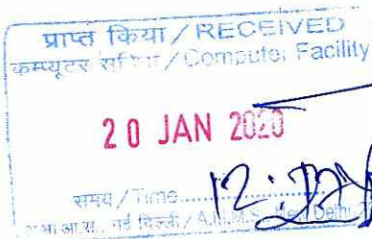 प्राप्त किया / RECEIVED
कम्प्यूटर / Computer Facility
20 JAN 2020
समय / Time 12:
नई दिल्ली / A.I.I.M.S., New Delhi